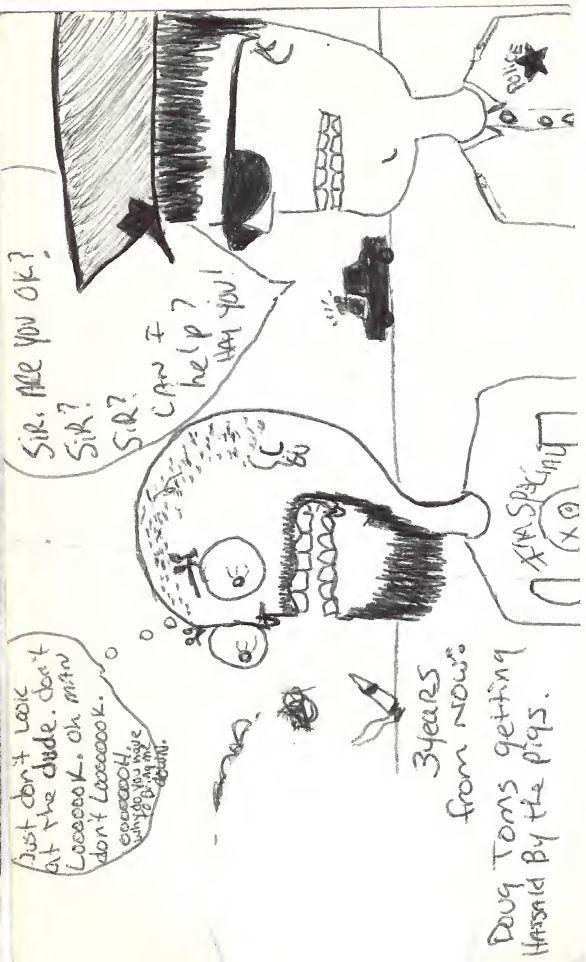 Just don't Look
at the dude. don't
Loooooook. Oh man
don't Loooooook.
oooooooH.
why do you have
to Bring me
down.
SiR. ARE YOU OK?
SiR?
SiR?
CAN I
help?
HAY YOU!
POLICE
X I'M
3 years
from now.
Doug Toms getting
Hassald By the pigs.